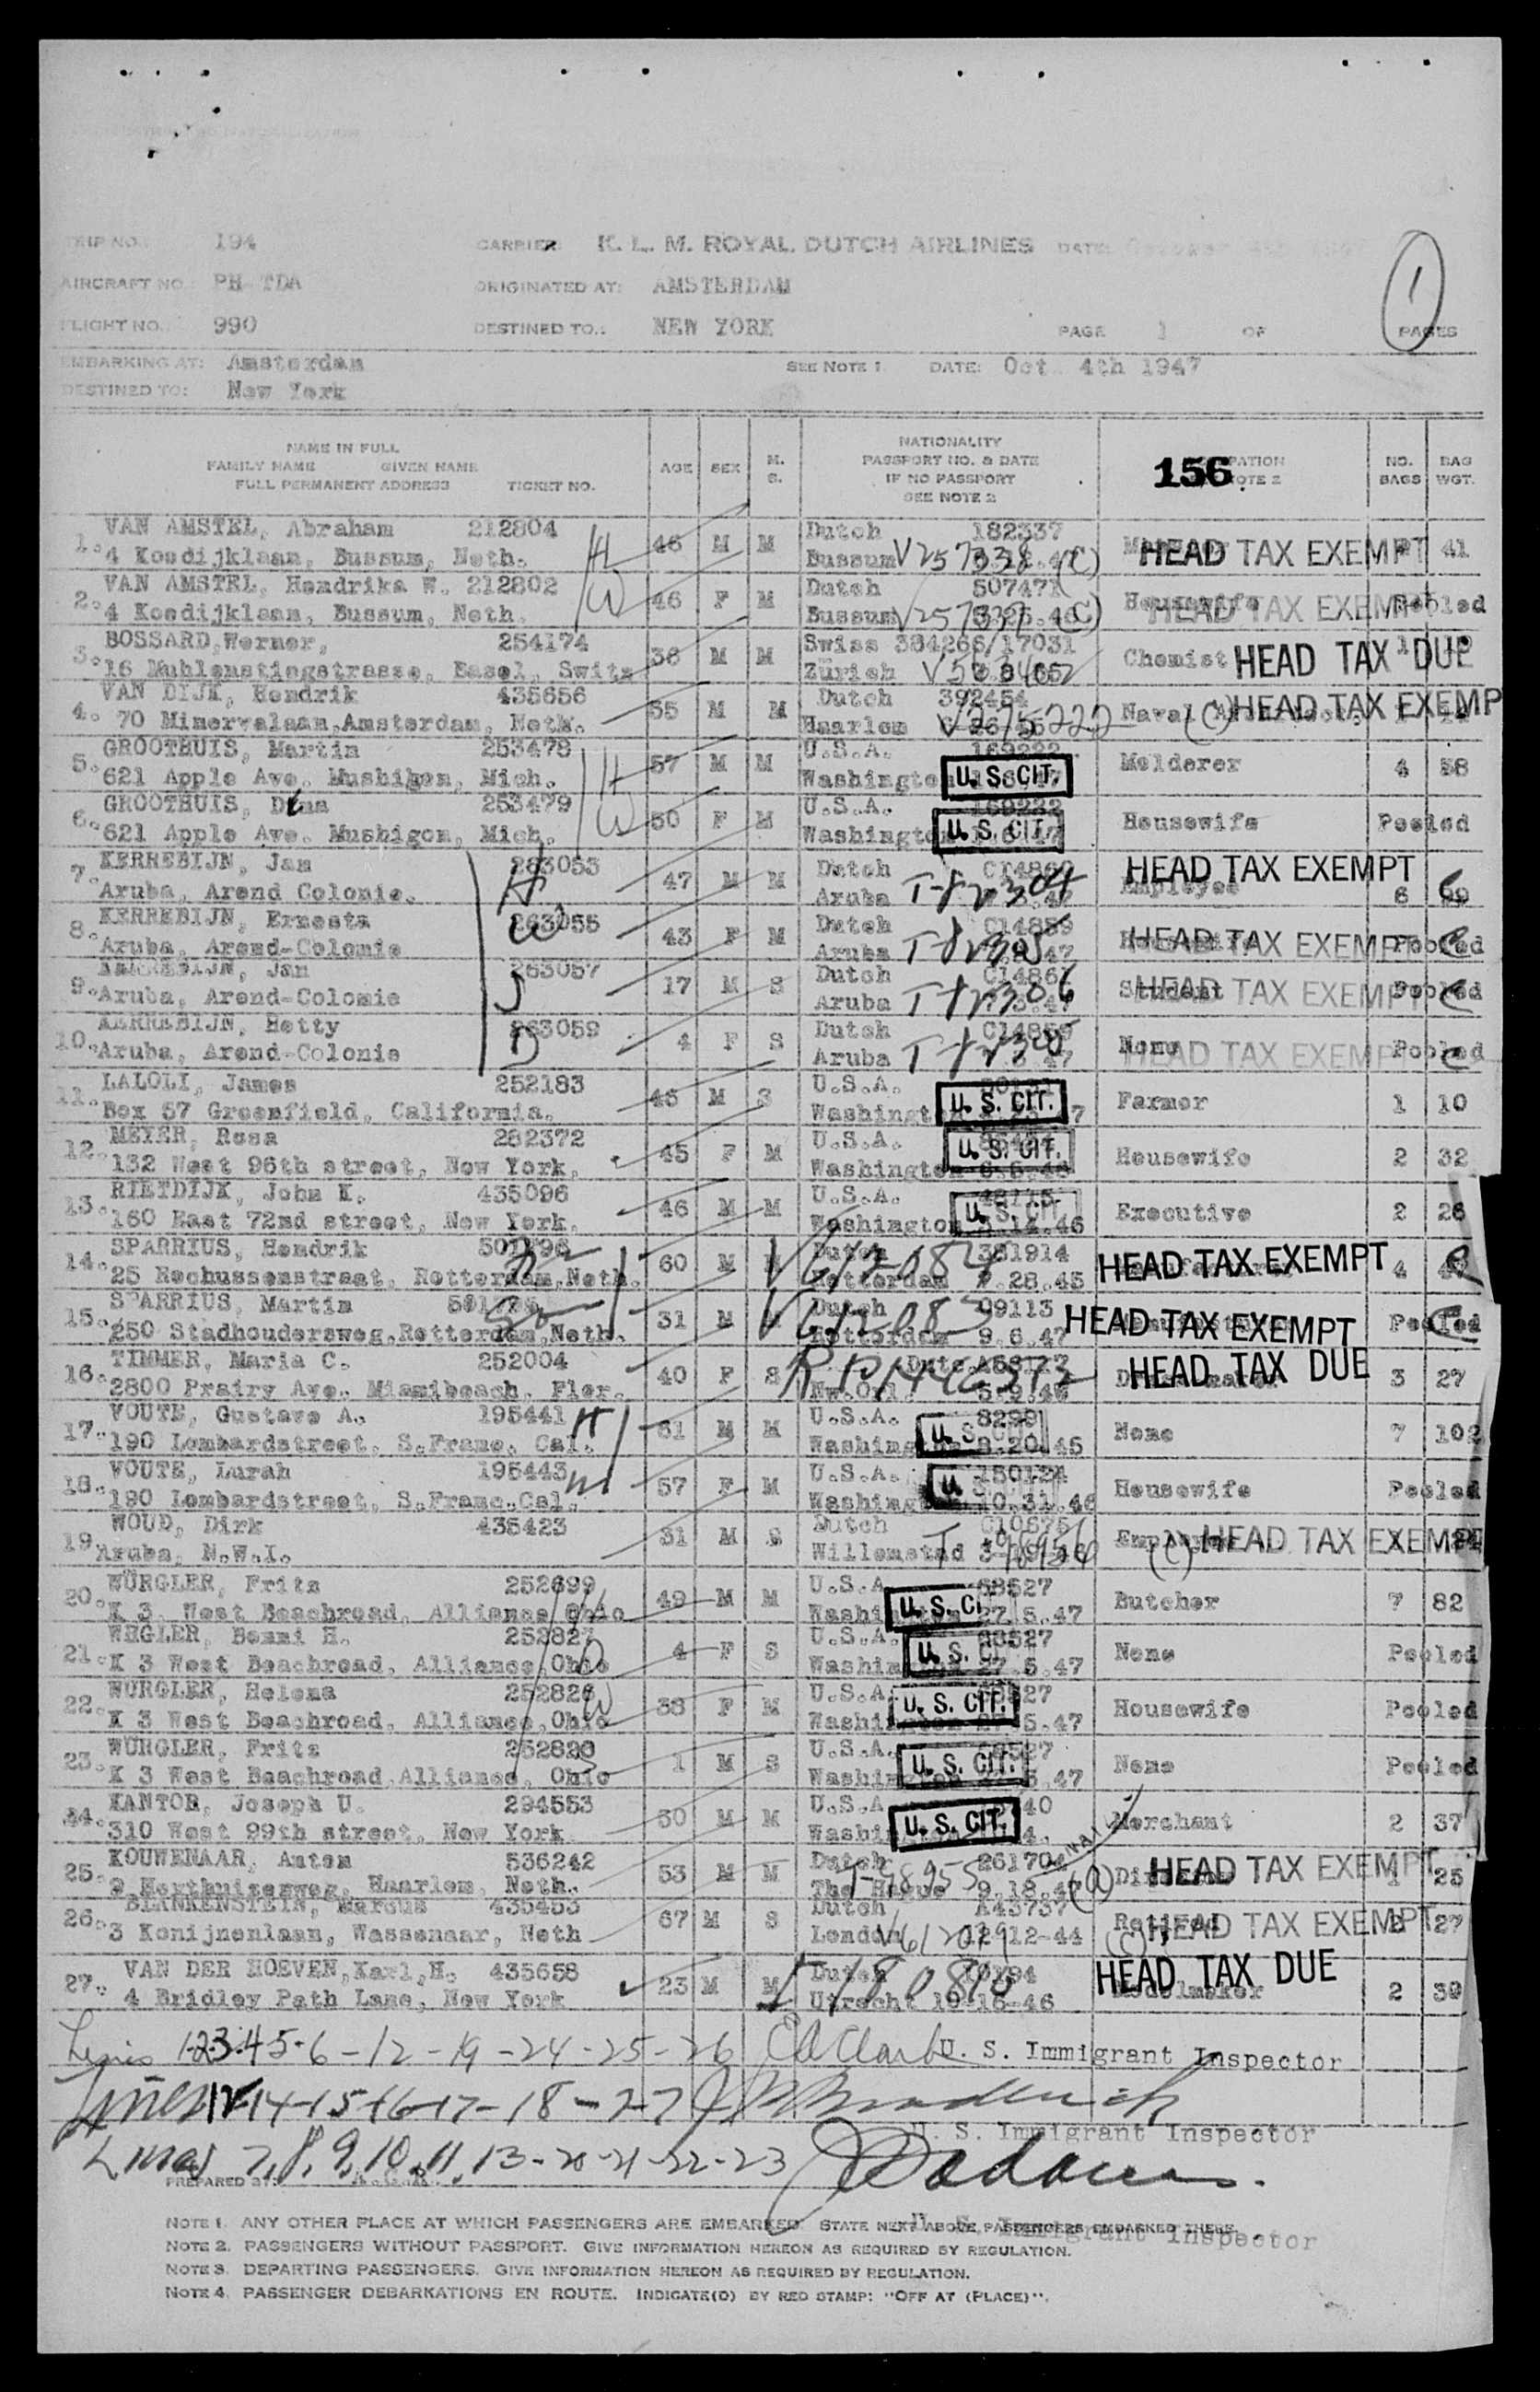 TRIP NO. 194 CARRIER K. L. M. ROYAL DUTCH AIRLINES DATE:
AIRCRAFT NO. PH TDA ORIGINATED AT: AMSTERDAM
FLIGHT NO. 990 DESTINED TO.: NEW YORK PAGE 1 OF 1 PAGES
EMBARKING AT: Amsterdam SEE NOTE 1 DATE: Oct 4th 1947
DESTINED TO: New York
NAME IN FULL
FAMILY NAME GIVEN NAME
FULL PERMANENT ADDRESS TICKET NO.
AGE SEX M. S.
NATIONALITY
PASSPORT NO. & DATE
IF NO PASSPORT
SEE NOTE 2
156
NO. BAGS BAG WGT.
1. VAN AMSTEL, Abraham 212804 H 46 M M Dutch 182337 HEAD TAX EXEMPT 41
4 Koedijklaan, Bussum, Neth. Bussum V257338 (C)
2. VAN AMSTEL, Hendrika W. 212802 W 46 F M Dutch 507471 Housewife HEAD TAX EXEMPT Pooled
4 Koedijklaan, Bussum, Neth. Bussum (C)
3. BOSSARD, Werner, 254174 36 M M Swiss 384266/17031 Chemist HEAD TAX DUE 1
16 Muhlenstiegstrasse, Basel, Switz Zürich
4. VAN DIJK, Hendrik 435656 55 M M Dutch 392454 Naval (C) HEAD TAX EXEMP
70 Minervalaan, Amsterdam, Neth. Haarlem
5. GROOTHUIS, Martin 253478 H 57 M M U.S.A. 169222 Molderer 4 58
621 Apple Ave. Mushihen, Mich. Washington U. S. CIT.
6. GROOTHUIS, Dina 253479 W 50 F M U.S.A. 169222 Housewife Pooled
621 Apple Ave. Mushigon, Mich. Washington U. S. CIT.
7. KERREBIJN, Jan 263053 H 47 M M Dutch C14860 HEAD TAX EXEMPT Employee 6
Aruba, Arend Colonie. Aruba
8. KERREBIJN, Ernesta 263055 W 43 F M Dutch C14859 HEAD TAX EXEMPT Pooled
Aruba, Arend-Colonie Aruba
9. KERREBIJN, Jan 263057 S 17 M S Dutch C14861 Student HEAD TAX EXEMP Pooled
Aruba, Arend-Colonie Aruba
10. KERREBIJN, Hetty 263059 D 4 F S Dutch C14859 None HEAD TAX EXEMP Pooled
Aruba, Arend-Colonie Aruba
11. LALOLI, James 252183 45 M S U.S.A. Farmer 1 10
Box 57 Greenfield, California. Washingt U. S. CIT. 7
12. MEYER, Rosa 282372 45 F M U.S.A. Housewife 2 32
132 West 96th street, New York. Washington U. S. CIT.
13. RIETDIJK, John K. 435096 46 M M U.S.A. 48115 Executive 2 26
160 East 72nd street, New York. Washington U. S. CIT .14.46
14. SPARRIUS, Hendrik 60 M Dutch 381914 HEAD TAX EXEMPT 4
25 Rochussenstraat, Rotterdam, Neth. Rotterdam 28.45
15. SPARRIUS, Martin 31 M Dutch 09113 HEAD TAX EXEMPT Pooled
250 Stadhoudersweg, Rotterdam, Neth. Rotterdam 9.6.47
16. TIMMER, Maria C. 252004 40 F S HEAD TAX DUE 3 27
2800 Prairy Ave. Miamibeach. Flor.
17. VOUTE, Gustave A. 195441 H 61 M M U.S.A. 8299 None 7 102
190 Lombardstreet, S.Franc. Cal. Washington U. S. 8.20.45
18. VOUTE, Lurah 195443 57 F M U.S.A. 150124 Housewife Pooled
190 Lombardstreet, S.Franc. Cal. Washing U. 10.31.46
19. WOUD, Dirk 435423 31 M S Dutch C10675 Employee (C) HEAD TAX EXEMP
Aruba, N.W.I. Willemstad
20. WÜRGLER, Fritz 252699 H 49 M M U.S.A 68527 Butcher 7 82
K 3 West Beachroad, Alliance Ohio Washin U. S. CI 27.5.47
21. WEGLER, Bonni H. 252827 D 4 F S U.S.A. 68527 None Pooled
K 3 West Beachroad, Alliance, Ohio Washin U. S. CI 27.5.47
22. WURGLER, Helena 252826 W 38 F M U.S.A. 27 Housewife Pooled
K 3 West Beachroad, Alliance, Ohio Washin U. S. CIT. 5.47
23. WÜRGLER, Fritz 252828 S 1 M S U.S.A. 68527 None Pooled
K 3 West Beachroad, Alliance, Ohio Washin U. S. CIT. 5.47
24. KANTOR, Joseph U. 294553 50 M M U.S.A 40 Merchant 2 37
310 West 99th street, New York Washi U. S. CIT. 4.
25. KOUWENAAR, Anton 536242 53 M M Dutch 261704 HEAD TAX EXEMPT 1 25
9 Herthuizerweg, Haarlem, Neth. The Hague 9.18.47
26. BLANKENSTEIN, Marcus 435453 67 M S Dutch A43737 Retired HEAD TAX EXEMPT 2 27
3 Konijnenlaan, Wassenaar, Neth London V612019 12-44 (C)
27. VAN DER HOEVEN, Karl, H. 435658 23 M M Dutch HEAD TAX DUE 2 39
4 Bridley Path Lane, New York Utrecht 10-16-46
Lines 1-2-3-4-5-6-12-19-24-25-26 U. S. Immigrant Inspector
Lines 14-15-16-17-18-27
U. S. Immigrant Inspector
Lines 7, 8, 9, 10, 11, 13-20-21-22-23
PREPARED BY:
NOTE 1. ANY OTHER PLACE AT WHICH PASSENGERS ARE EMBARKED. STATE NEXT ABOVE PASSENGERS EMBARKED THERE.
U. S. Immigrant Inspector
NOTE 2. PASSENGERS WITHOUT PASSPORT. GIVE INFORMATION HEREON AS REQUIRED BY REGULATION.
NOTE 3. DEPARTING PASSENGERS. GIVE INFORMATION HEREON AS REQUIRED BY REGULATION.
NOTE 4. PASSENGER DEBARKATIONS EN ROUTE. INDICATE(D) BY RED STAMP: "OFF AT (PLACE)".